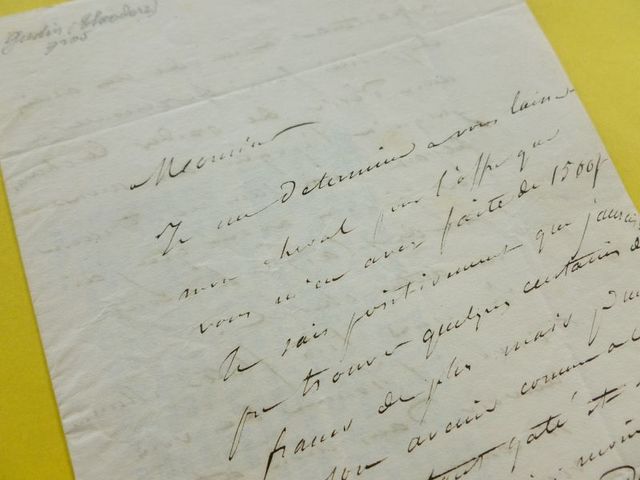 Gudin (Théodore)
Monsieur
Je me determine a vous laisser
mon cheval pour l'offre que
vous m'en avez faite de 1500f
Je sais positivement que j'aurais
pu trouver quelques centaines de
francs de plus mais pour
son avenir comme a
tout gaté et
moins